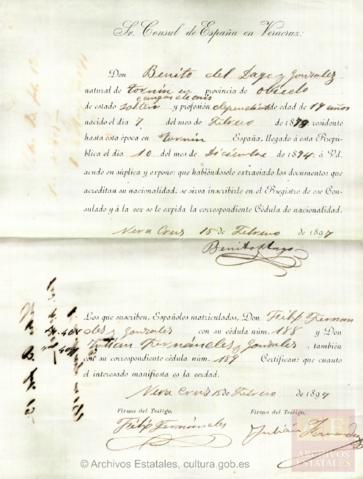 Sr. Consul de España en Veracruz:
Don Benito del Lago y Gonzalez
natural de Tornin en provincia de Oviedo
Cangas de Onis
de estado soltero y profesión dependiente de edad de años
nacido el día 7 del mes de Febrero de residente
hasta esta época en Tornin España, llegado á esta Repú-
blica el día 10 del mes de Diciembre de 1894 á Vd.
acude en súplica y expone: que habiéndosele extraviado los documentos que
acreditan su nacionalidad, se sirva inscribirle en el Registro de ese Con-
sulado y á la vez se le expida la correspondiente Cédula de nacionalidad.
Vera Cruz 15 de Febrero de 1897
Benito Lago
Los que suscriben, Españoles matriculados, Don Felip Fernan
des y Gonzales con su cédula núm. 188 y Don
Fernandes y Gonzales, también
con su correspondiente cédula núm. 189 Certifican: que cuanto
el interesado manifiesta es la verdad.
Vera Cruz 15 Febrero de 1897
Firma del Testigo, Firma del Testigo,
Felip Fernandes Julian Fernandez
ARCHIVOS
ESTATALES
© Archivos Estatales, cultura.gob.es